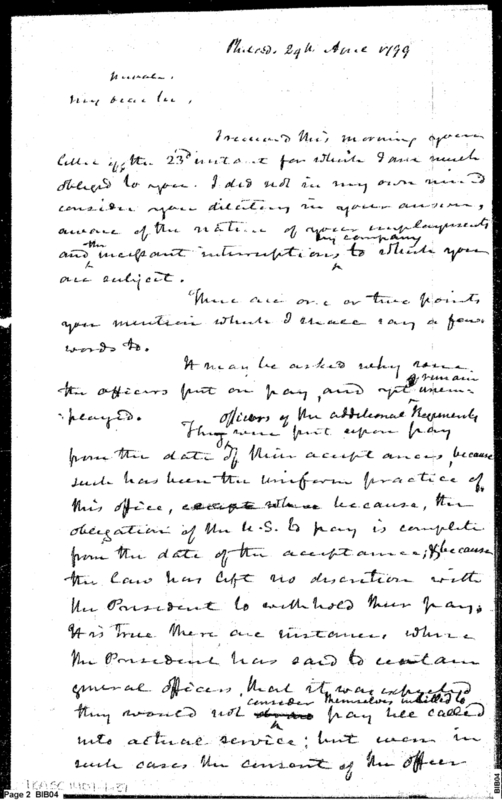 Philad. 29th April 1799
Private.
My dear Sir,
I received this morning your
letter of the 23d instant for which I am much
obliged to you. I did not in my own mind
consider you dilatory in your answer,
aware of the nature of your employments
by company
and the incessant interruptions to which you
are subject.
There are one or two points
you mention which I shall say a few
words to.
It may be asked why some
the officers put on pay, and yet remain unem-
ployed.
officers of the additional Regiments
They were put upon pay
from the date of their acceptances, because
such has been the uniform practice of
this office, except where because, the
obligation of the U.S. to pay is complete
from the date of the acceptance; & because
the law has left no discretion with
the President to withhold their pay.
It is true there are instances where
the President has said to certain
general officers, that it was expected
consider themselves intitled to
they would not pay till called
into actual service; but even in
such cases the consent of the officer
Page 2 BIB04
BIB04